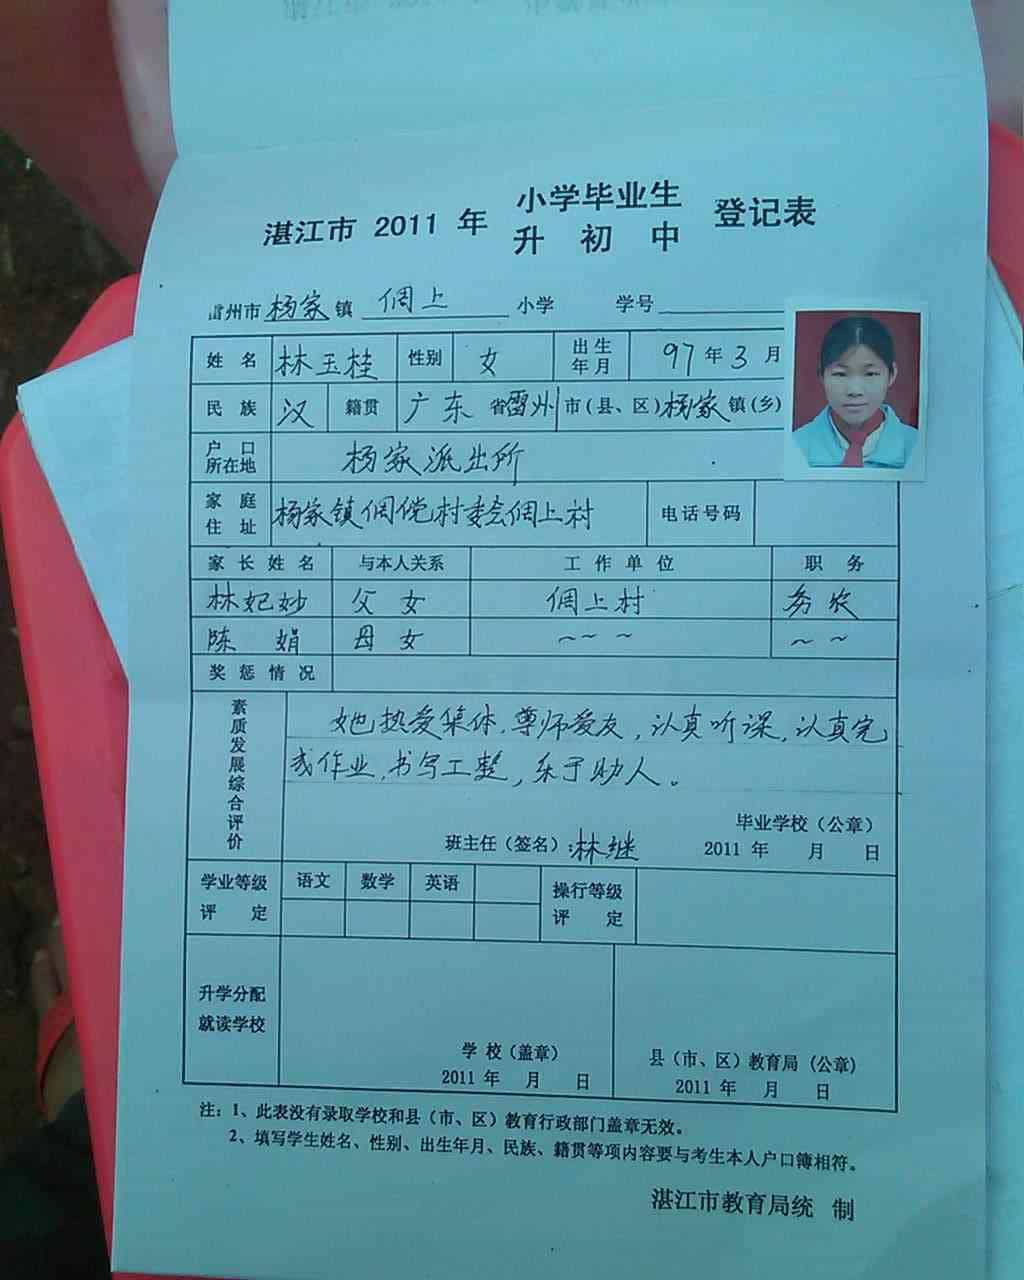 湛江市 2011 年 小学毕业生 升初中 登记表
雷州市 杨家 镇 倜上 小学 学号
姓名 林玉桂 性别 女 出生年月 97 年 3 月
民族 汉 籍贯 广东 省 雷州 市(县、区) 杨家 镇(乡)
户口所在地 杨家派出所
家庭住址 杨家镇倜傥村委会倜上村 电话号码
家长姓名 与本人关系 工作单位 职务
林妃妙 父女 倜上村 务农
陈娟 母女 ~ ~ ~ ~ ~
奖惩情况
素质发展综合评价
她热爱集体,尊师爱友,认真听课,认真完
成作业,书写工整,乐于助人。
毕业学校(公章)
班主任(签名): 林继 2011 年 月 日
学业等级评定 语文 数学 英语 操行等级评定
升学分配就读学校
学校(盖章) 县(市、区)教育局(公章)
2011 年 月 日 2011 年 月 日
注:1、此表没有录取学校和县(市、区)教育行政部门盖章无效。
2、填写学生姓名、性别、出生年月、民族、籍贯等项内容要与考生本人户口簿相符。
湛江市教育局统 制